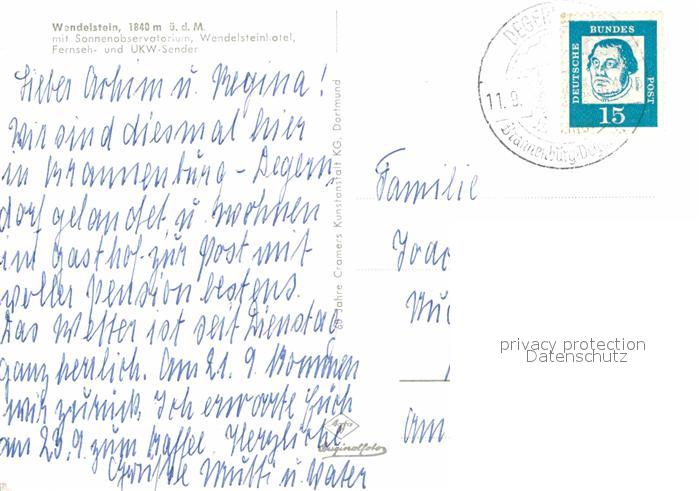 Wendelstein, 1840 m ü. d. M.
mit Sonnenobservatorium, Wendelsteinhotel,
Fernseh- und UKW-Sender
Lieber Achim u. Regina!
Wir sind diesmal hier
in Brannenburg-Degern
dorf gelandet u. wohnen
im Gasthof zur Post mit
voller Pension bestens.
Das Wetter ist seit Dienstag
ganz herrlich. Am 21. 9. kommen
wir zurück. Ich erwarte Euch
am 23. 9 zum Kaffee. Herzliche
Grüße Mutti u. Vater
Jahre Cramers Kunstanstalt KG, Dortmund
Originalfoto
DEUTSCHE BUNDES POST
15
DEGER
11. 9.
Brannenburg-Deg
Familie
Joac
Am
privacy protection
Datenschutz